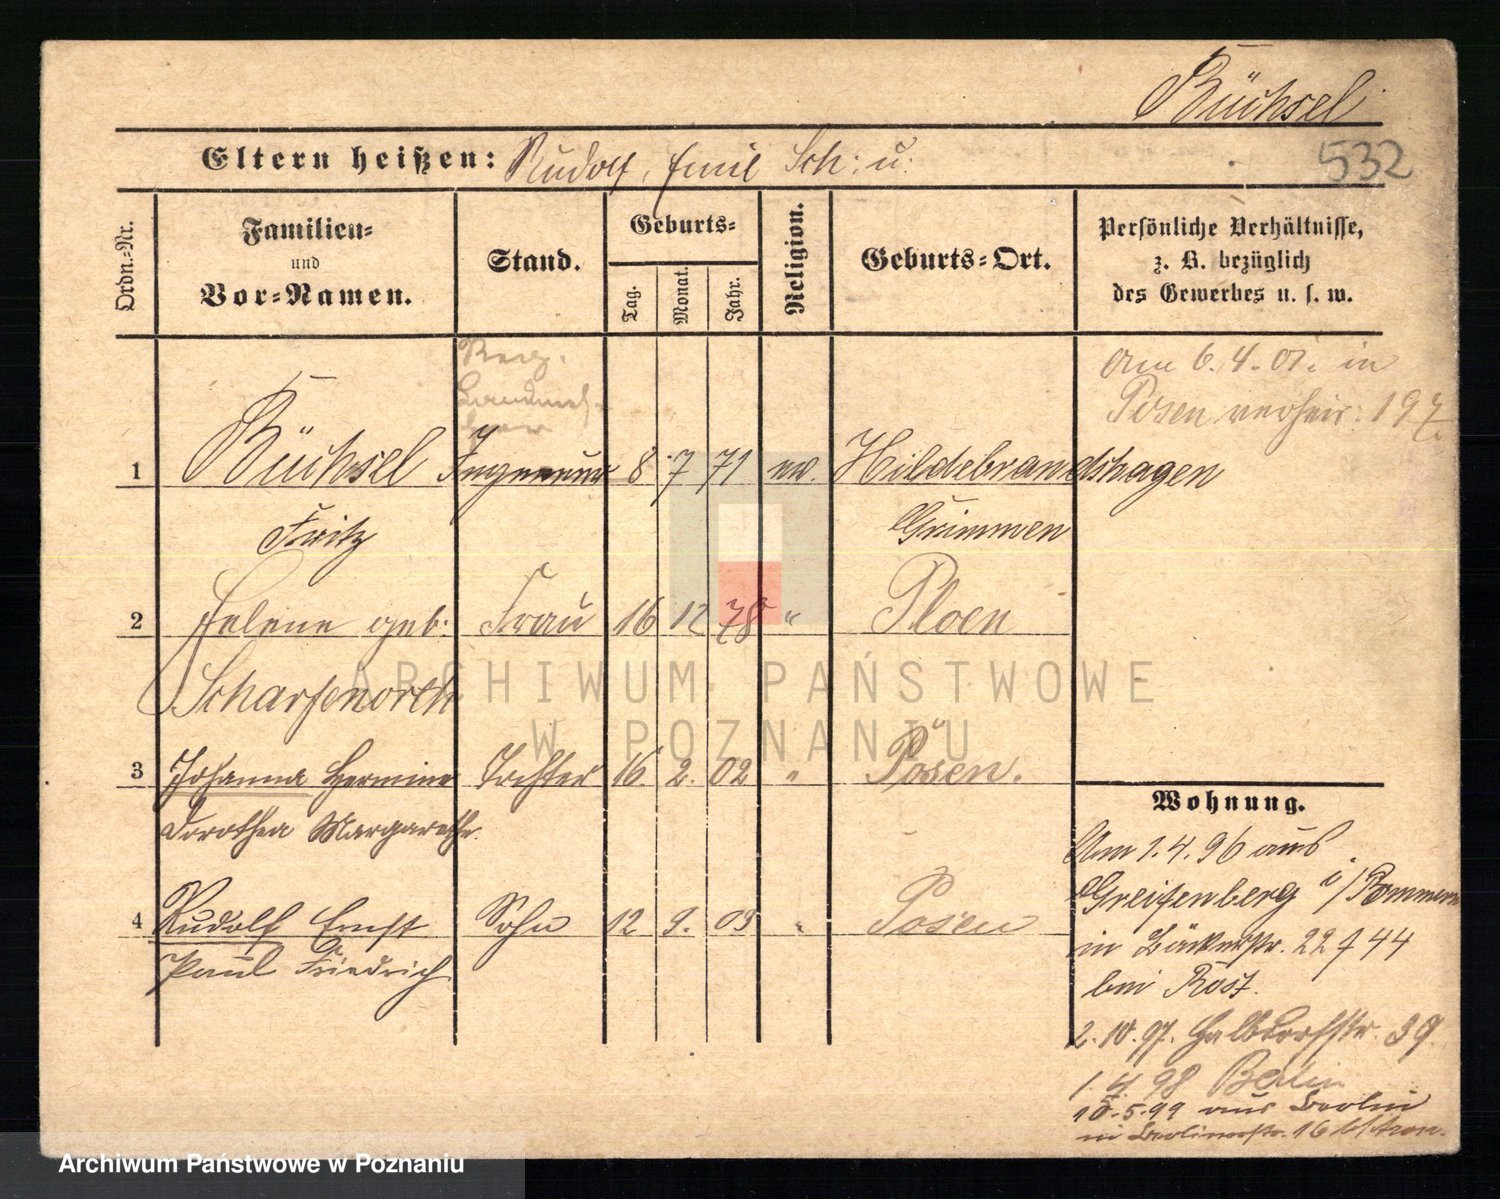 Büchsel
Eltern heißen: Rudolf, Emil Sch: u:
532
Ordn.-Nr.
Familien-
und
Vor-Namen.
Stand.
Geburts-
Tag.
Monat.
Jahr.
Religion.
Geburts-Ort.
Persönliche Verhältnisse,
z. B. bezüglich
des Gewerbes u. s. w.
Am 6.4.01. in
Posen verheir:
1 Büchsel Ingenieur 8 7 71 ev. Hildebrandshagen
Fritz Grimmen
2 Helene geb. Frau 16 12 78 " Ploen
Scharfenorth
3 Johanna Hermine Tochter 16. 2. 02 " Posen.
Dorothea Margarethe
4 Rudolf Ernst Sohn 12 9. 03 " Posen
Paul Friedrich
Wohnung.
Am 1.4.96 aus
Greifenberg i/Pommern
in Bäckerstr. 22 f 44
bei Rost.
2.10.97. Halbdorfstr. 39.
1.4.98 Berlin
10.5.99 aus Berlin
in Berlinerstr. 16 b/
ARCHIWUM PAŃSTWOWE
W POZNANIU
Archiwum Państwowe w Poznaniu